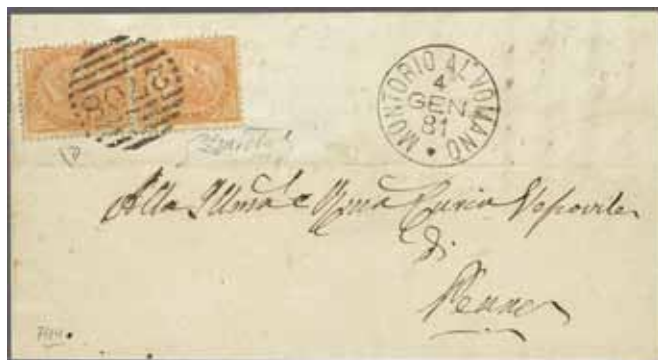 MONTORIO AL VOMANO
4
GEN
81
Alla Illma e Rma Curia Vescovile
di
Penne